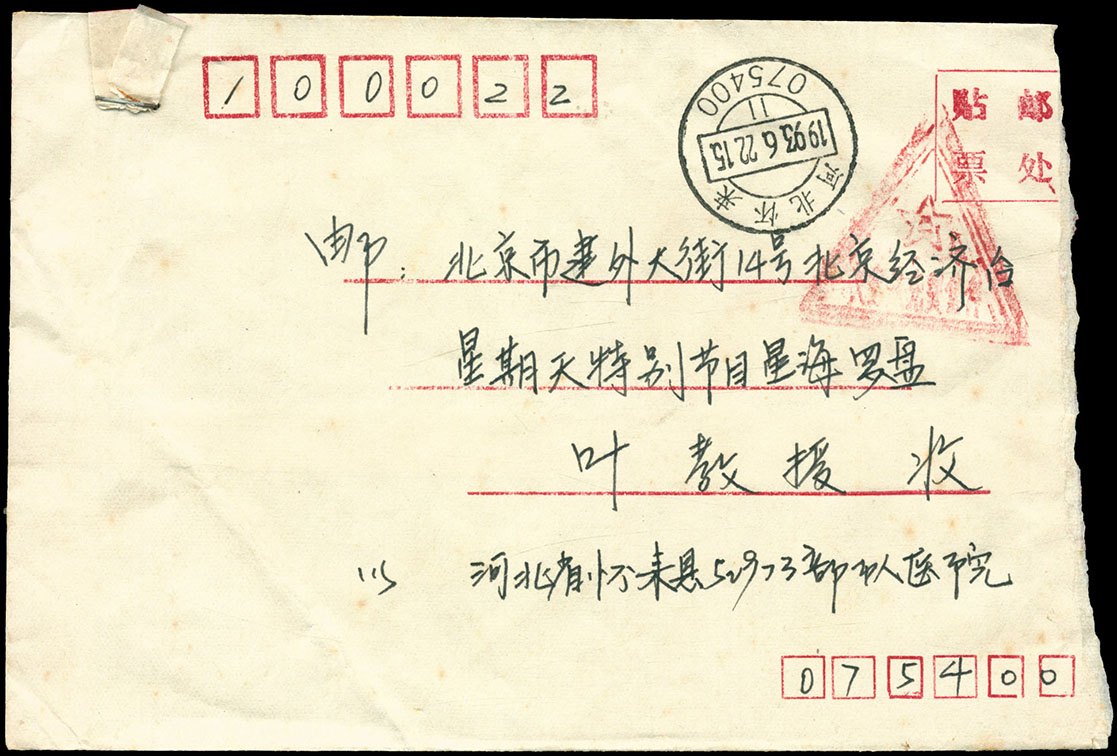 100022
075400
11
1993.6.22.15
河北怀来
贴 邮
票 处
邮: 北京市建外大街14号北京经济台
星期天特别节目星海罗盘
叶 教 授 收
河北省怀来县52973部队医院
075400